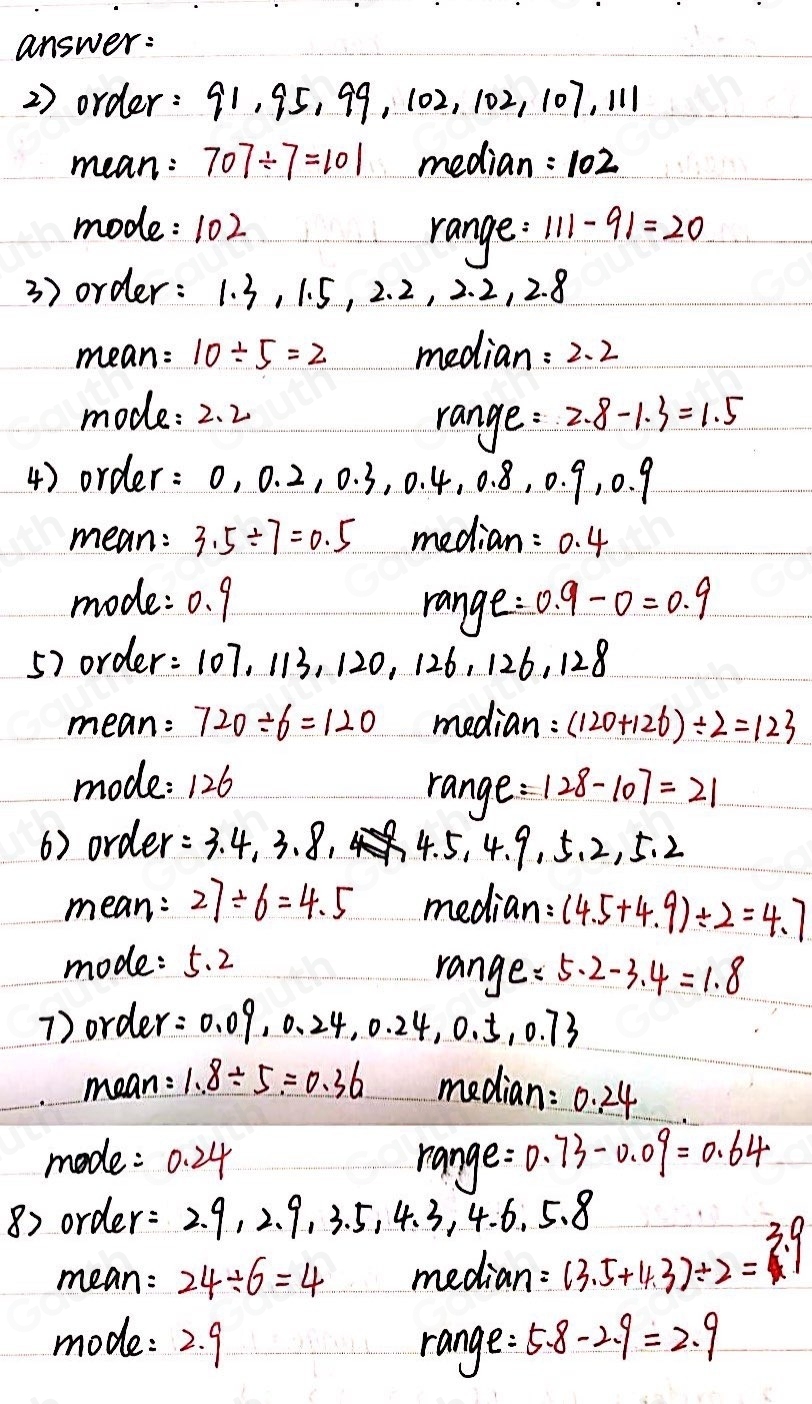 answer:
2) order: 91, 95, 99, 102, 102, 107, 111
mean: 707÷7=101 median: 102
mode: 102 range: 111-91=20
3) order: 1.3, 1.5, 2.2, 2.2, 2.8
mean: 10÷5=2 median: 2.2
mode: 2.2 range: 2.8-1.3=1.5
4) order: 0, 0.2, 0.3, 0.4, 0.8, 0.9, 0.9
mean: 3.5÷7=0.5 median: 0.4
mode: 0.9 range: 0.9-0=0.9
5) order: 107, 113, 120, 126, 126, 128
mean: 720÷6=120 median: (120+126)÷2=123
mode: 126 range: 128-107=21
6) order: 3.4, 3.8, 4.5, 4.9, 5.2, 5.2
mean: 27÷6=4.5 median: (4.5+4.9)÷2=4.7
mode: 5.2 range: 5.2-3.4=1.8
7) order: 0.09, 0.24, 0.24, 0.5, 0.73
mean: 1.8÷5=0.36 median: 0.24
mode: 0.24 range: 0.73-0.09=0.64
8) order: 2.9, 2.9, 3.5, 4.3, 4.6, 5.8
mean: 24÷6=4 median: (3.5+4.3)÷2=3.9
mode: 2.9 range: 5.8-2.9=2.9